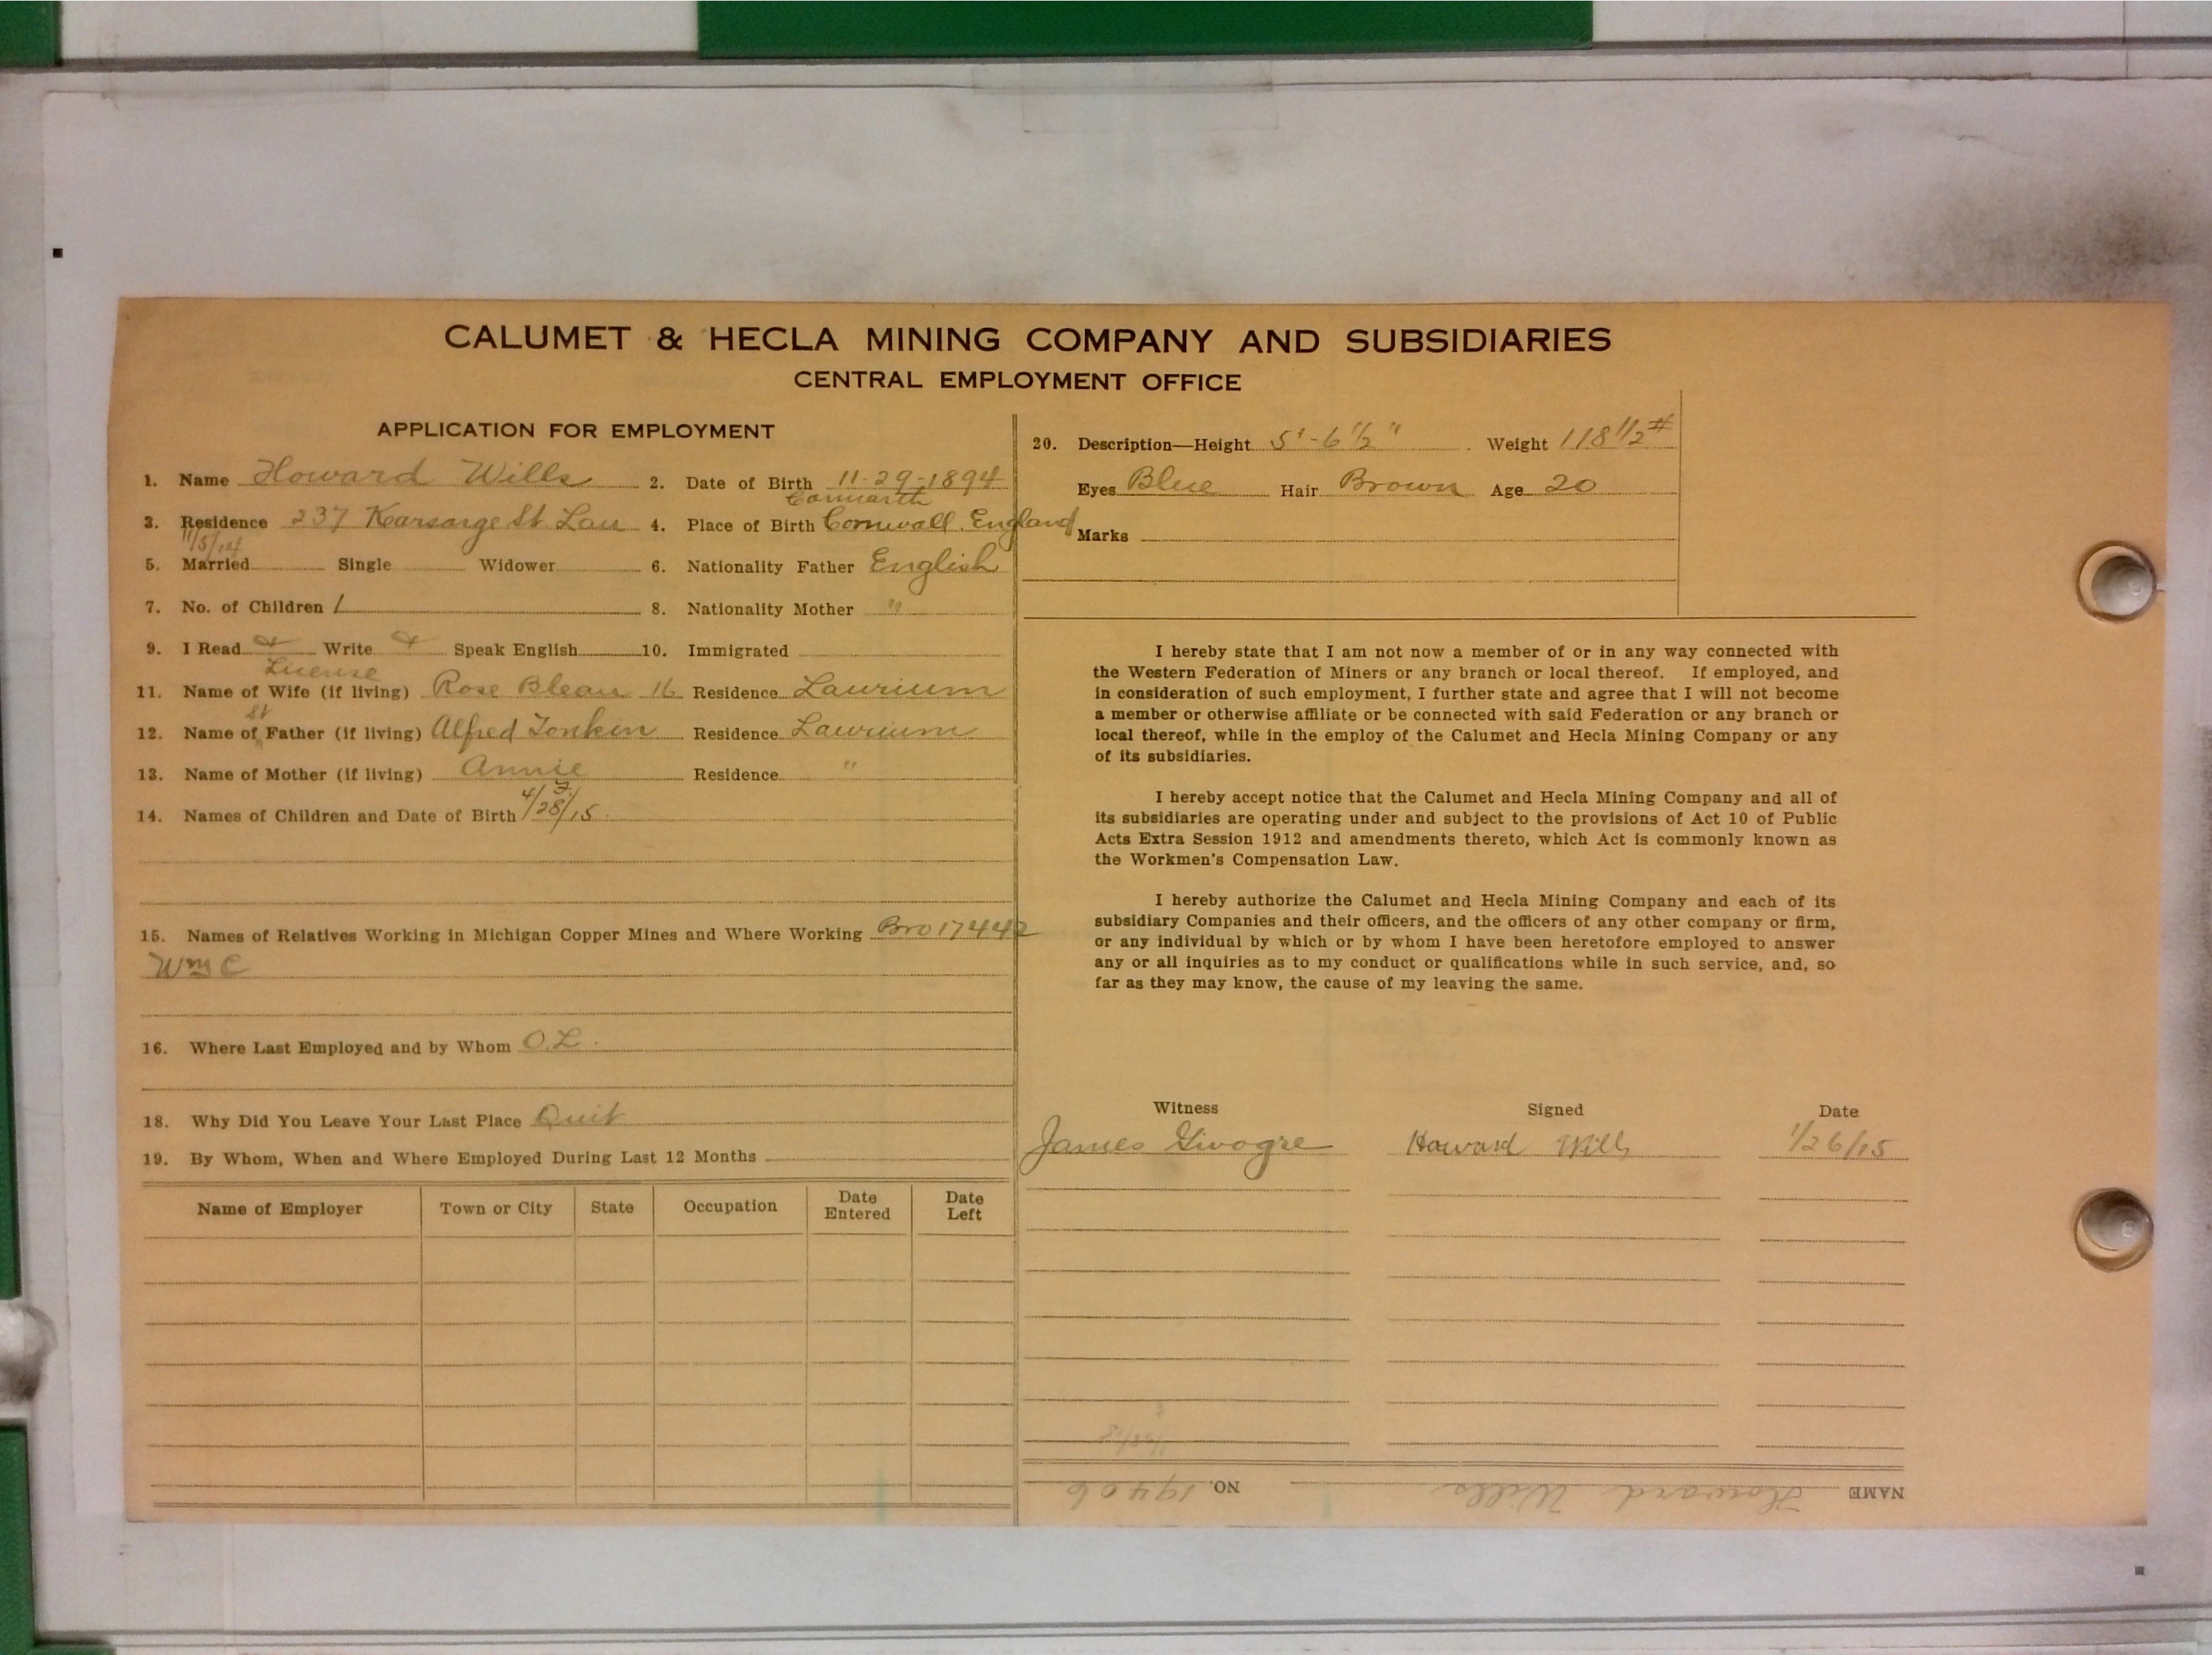 CALUMET & HECLA MINING COMPANY AND SUBSIDIARIES
CENTRAL EMPLOYMENT OFFICE
APPLICATION FOR EMPLOYMENT
1. Name Howard Wills 2. Date of Birth 11-29-1894
3. Residence 237 Kearsarge St. Lau 4. Place of Birth Cornwall. England
11/5/14
5. Married Single Widower 6. Nationality Father English
7. No. of Children 1 8. Nationality Mother "
9. I Read Write Speak English 10. Immigrated
License
11. Name of Wife (if living) Rose Bleau 16 Residence Laurium
St
12. Name of Father (if living) Alfred Tonkin Residence Laurium
13. Name of Mother (if living) Annie Residence "
14. Names of Children and Date of Birth 4/28/15
15. Names of Relatives Working in Michigan Copper Mines and Where Working Bro 17442
Wm C
16. Where Last Employed and by Whom O.L.
18. Why Did You Leave Your Last Place Quit
19. By Whom, When and Where Employed During Last 12 Months
Name of Employer Town or City State Occupation Date Entered Date Left
20. Description—Height 5'-6 1/2" Weight 118 1/2#
Eyes Blue Hair Brown Age 20
Marks
I hereby state that I am not now a member of or in any way connected with
the Western Federation of Miners or any branch or local thereof. If employed, and
in consideration of such employment, I further state and agree that I will not become
a member or otherwise affiliate or be connected with said Federation or any branch or
local thereof, while in the employ of the Calumet and Hecla Mining Company or any
of its subsidiaries.
I hereby accept notice that the Calumet and Hecla Mining Company and all of
its subsidiaries are operating under and subject to the provisions of Act 10 of Public
Acts Extra Session 1912 and amendments thereto, which Act is commonly known as
the Workmen's Compensation Law.
I hereby authorize the Calumet and Hecla Mining Company and each of its
subsidiary Companies and their officers, and the officers of any other company or firm,
or any individual by which or by whom I have been heretofore employed to answer
any or all inquiries as to my conduct or qualifications while in such service, and, so
far as they may know, the cause of my leaving the same.
Witness Signed Date
James Howard Wills 1/26/15
NAME Howard Wills NO. 19406